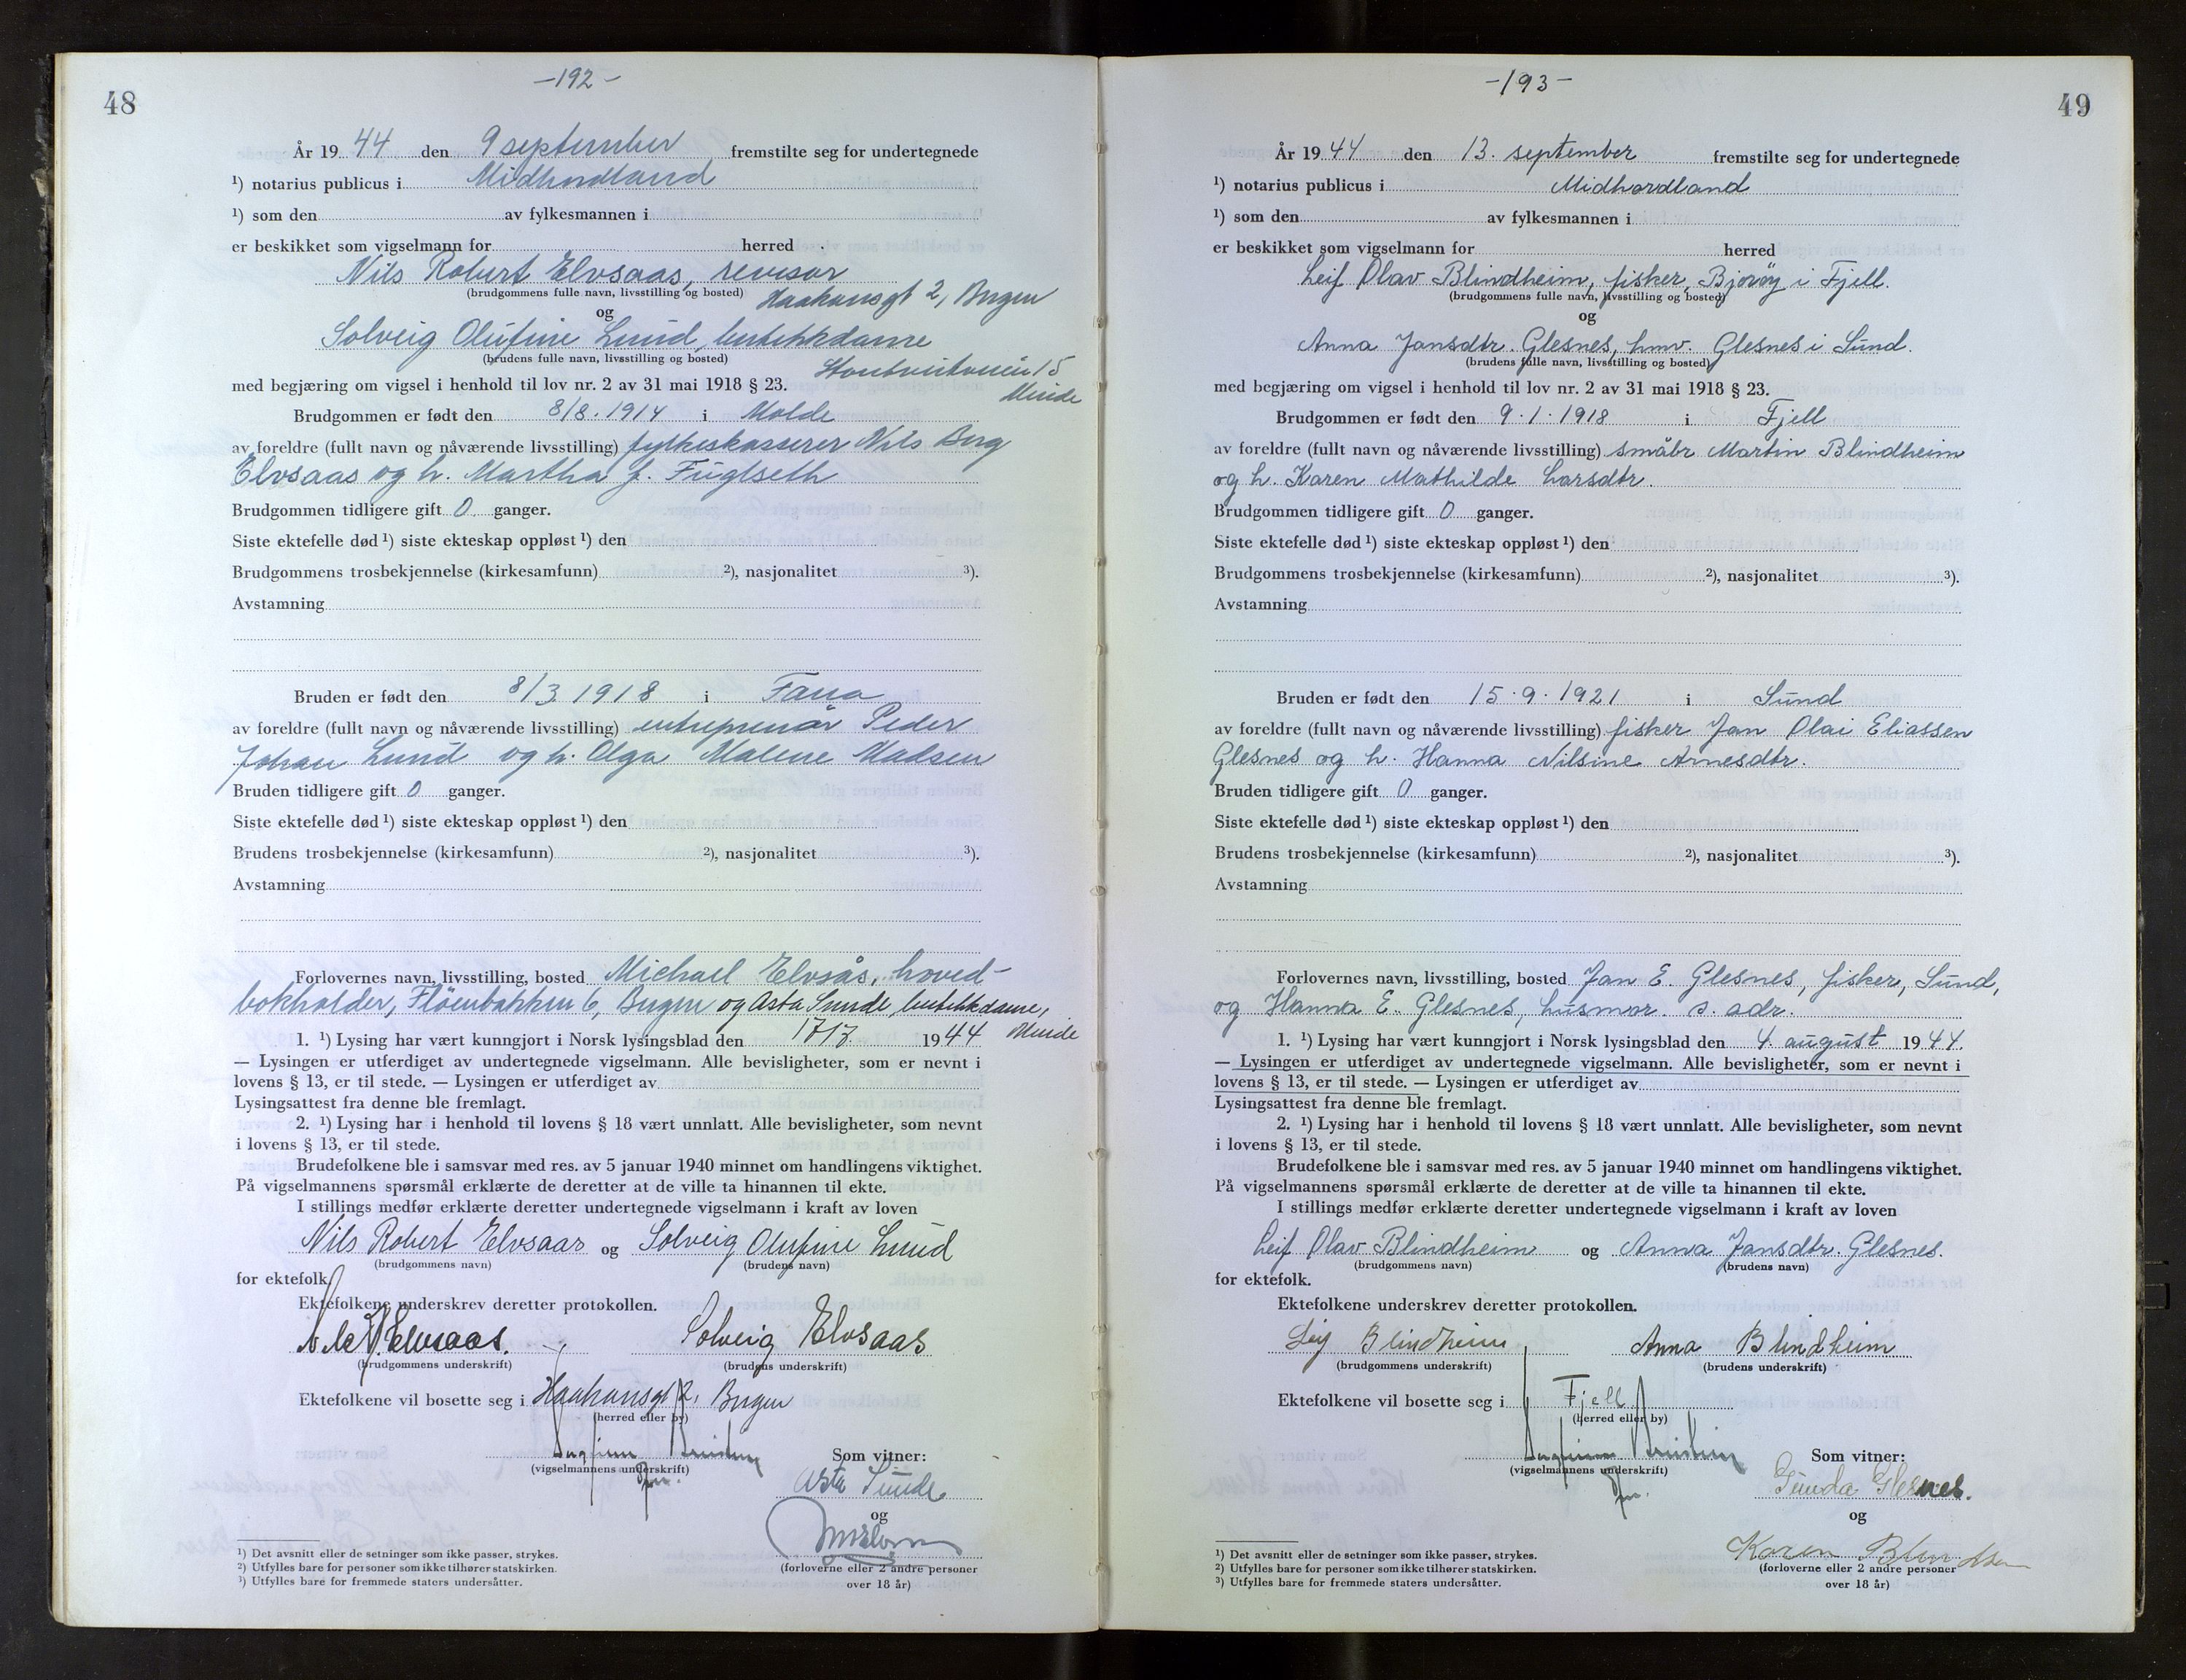 48
-192-
År 1944 den 9 september fremstilte seg for undertegnede
¹) notarius publicus i Midhordland
¹) som den av fylkesmannen i
er beskikket som vigselmann for herred
Nils Robert Elvsaas, revisor
(brudgommens fulle navn, livsstilling og bosted) Haakonsgt 2, Bergen
og
Solveig Olufine Lund, butikkdame
(brudens fulle navn, livsstilling og bosted)
15
Minde
med begjæring om vigsel i henhold til lov nr. 2 av 31 mai 1918 § 23.
Brudgommen er født den 8/8.1914 i Molde
av foreldre (fullt navn og nåværende livsstilling) fylkeskasserer Nils Berg
Elvsaas og h. Martha f. Fuglseth
Brudgommen tidligere gift 0 ganger.
Siste ektefelle død ¹) siste ekteskap oppløst ¹) den
Brudgommens trosbekjennelse (kirkesamfunn) ²), nasjonalitet ³).
Avstamning
Bruden er født den 8/3 1918 i Fana
av foreldre (fullt navn og nåværende livsstilling) entreprenør Peder
Johan Lund og h. Olga Malene Madsen
Bruden tidligere gift 0 ganger.
Siste ektefelle død ¹) siste ekteskap oppløst ¹) den
Brudens trosbekjennelse (kirkesamfunn) ²), nasjonalitet ³).
Avstamning
Forlovernes navn, livsstilling, bosted Michael Elvsås, hoved-
bokholder, Fløenbakken 6, Bergen og Asta Sunde, butikkdame,
Minde
1. ¹) Lysing har vært kunngjort i Norsk lysingsblad den 17/7. 1944
— Lysingen er utferdiget av undertegnede vigselmann. Alle bevisligheter, som er nevnt i
lovens § 13, er til stede. — Lysingen er utferdiget av
Lysingsattest fra denne ble fremlagt.
2. ¹) Lysing har i henhold til lovens § 18 vært unnlatt. Alle bevisligheter, som nevnt
i lovens § 13, er til stede.
Brudefolkene ble i samsvar med res. av 5 januar 1940 minnet om handlingens viktighet.
På vigselmannens spørsmål erklærte de deretter at de ville ta hinannen til ekte.
I stillings medfør erklærte deretter undertegnede vigselmann i kraft av loven
Nils Robert Elvsaas og Solveig Olufine Lund
(brudgommens navn) (brudens navn)
for ektefolk.
Ektefolkene underskrev deretter protokollen.
Elvsaas. Solveig Elvsaas
(brudgommens underskrift) (brudens underskrift)
Ektefolkene vil bosette seg i Haakonsgt 2, Bergen
(herred eller by)
(vigselmannens underskrift)
Som vitner:
Asta Sunde
og
(forloverne eller 2 andre personer
over 18 år)
¹) Det avsnitt eller de setninger som ikke passer, strykes.
²) Utfylles bare for personer som ikke tilhører statskirken.
³) Utfylles bare for fremmede staters undersåtter.
49
-193-
År 1944 den 13. september fremstilte seg for undertegnede
¹) notarius publicus i Midhordland
¹) som den av fylkesmannen i
er beskikket som vigselmann for herred
Leif Olav Blindheim, fisker, Bjorøy i Fjell.
(brudgommens fulle navn, livsstilling og bosted)
og
Anna Jansdtr. Glesnes, hmv. Glesnes i Sund.
(brudens fulle navn, livsstilling og bosted)
med begjæring om vigsel i henhold til lov nr. 2 av 31 mai 1918 § 23.
Brudgommen er født den 9.1.1918 i Fjell
av foreldre (fullt navn og nåværende livsstilling) småbr Martin Blindheim
og h. Karen Mathilde Larsdtr.
Brudgommen tidligere gift 0 ganger.
Siste ektefelle død ¹) siste ekteskap oppløst ¹) den
Brudgommens trosbekjennelse (kirkesamfunn) ²), nasjonalitet ³).
Avstamning
Bruden er født den 15.9.1921 i Sund
av foreldre (fullt navn og nåværende livsstilling) fisker Jan Olai Eliassen
Glesnes og h. Hanna Nilsine Arnesdtr.
Bruden tidligere gift 0 ganger.
Siste ektefelle død ¹) siste ekteskap oppløst ¹) den
Brudens trosbekjennelse (kirkesamfunn) ²), nasjonalitet ³).
Avstamning
Forlovernes navn, livsstilling, bosted Jan E. Glesnes, fisker, Sund,
og Hanna E. Glesnes, husmor. s. adr.
1. ¹) Lysing har vært kunngjort i Norsk lysingsblad den 4. august 1944.
— Lysingen er utferdiget av undertegnede vigselmann. Alle bevisligheter, som er nevnt i
lovens § 13, er til stede. — Lysingen er utferdiget av
Lysingsattest fra denne ble fremlagt.
2. ¹) Lysing har i henhold til lovens § 18 vært unnlatt. Alle bevisligheter, som nevnt
i lovens § 13, er til stede.
Brudefolkene ble i samsvar med res. av 5 januar 1940 minnet om handlingens viktighet.
På vigselmannens spørsmål erklærte de deretter at de ville ta hinannen til ekte.
I stillings medfør erklærte deretter undertegnede vigselmann i kraft av loven
Leif Olav Blindheim og Anna Jansdtr. Glesnes.
(brudgommens navn) (brudens navn)
for ektefolk.
Ektefolkene underskrev deretter protokollen.
Leif Blindheim Anna Blindheim
(brudgommens underskrift) (brudens underskrift)
Ektefolkene vil bosette seg i Fjell
(herred eller by)
(vigselmannens underskrift)
Som vitner:
Gunda Glesnes.
og
Karen
(forloverne eller 2 andre personer
over 18 år)
¹) Det avsnitt eller de setninger som ikke passer, strykes.
²) Utfylles bare for personer som ikke tilhører statskirken.
³) Utfylles bare for fremmede staters undersåtter.